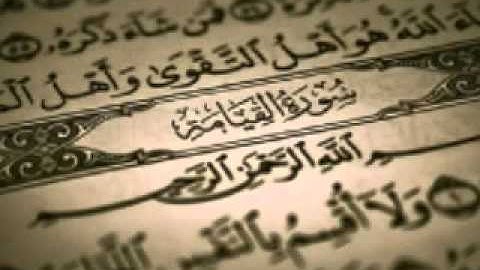 فَمَن شَآءَ ذَكَرَهُۥ ٥٥
ـآءَ ٱللَّهُ هُوَ أَهْلُ ٱلتَّقْوَىٰ وَأَهْلُ
سُورَةُ القِيَامَةِ
ـسْمِ ٱللَّهِ ٱلرَّحْمَٰنِ ٱلرَّحِيمِ
١ وَلَآ أُقْسِمُ بِٱلنَّفْسِ